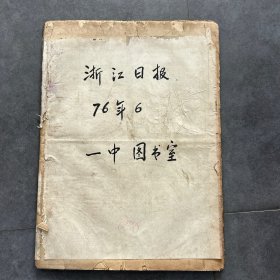 浙江日报
76年6
一中图书室